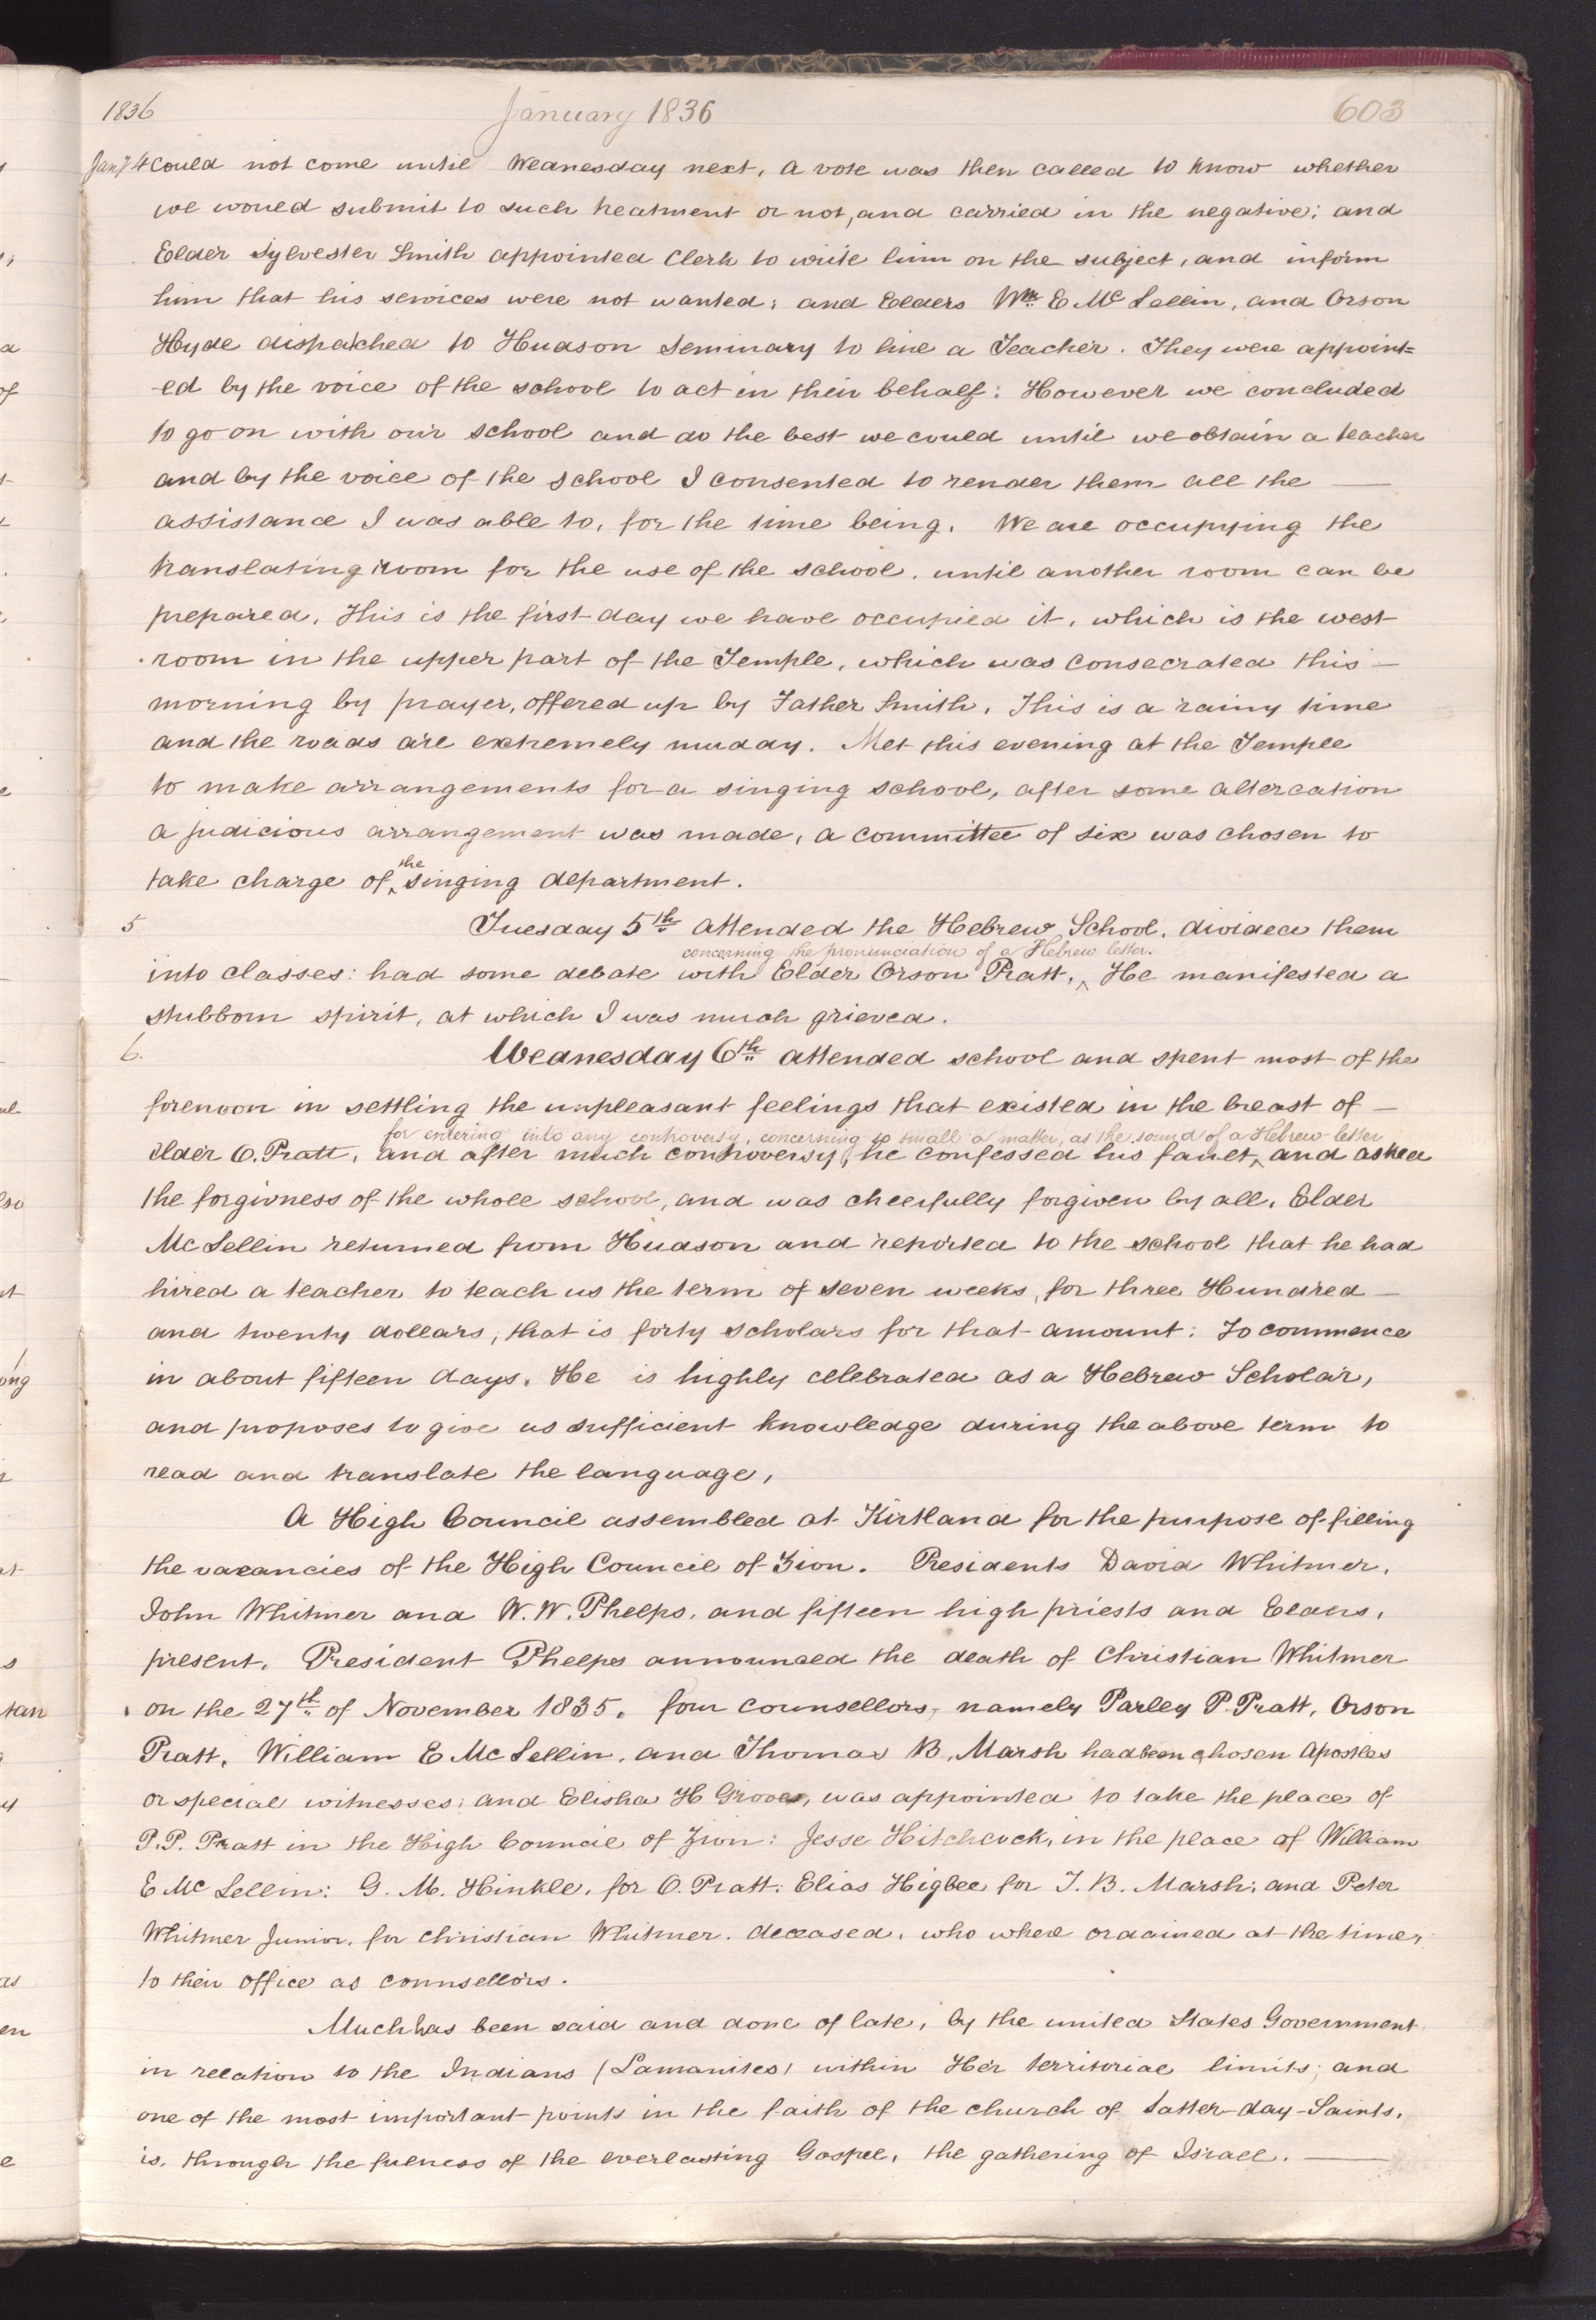 1836 January 1836 603
Jany 4 could not come until Wednesday next, a vote was then called to know whether
we would submit to such treatment or not, and carried in the negative; and
Elder Sylvester Smith appointed Clerk to write him on the subject, and inform
him that his services were not wanted; and Elders Wm. E Mc Lellin, and Orson
Hyde dispatched to Hudson Seminary to hire a Teacher. They were appoint=
-ed by the voice of the school to act in their behalf: However we concluded
to go on with our school and do the best we could until we obtain a teacher
and by the voice of the school I consented to render them all the —
assistance I was able to, for the time being. We are occupying the
translating room for the use of the school. until another room can be
prepared, This is the first day we have occupied it, which is the west
room in the upper part of the Temple, which was consecrated this —
morning by prayer, offered up by Father Smith, This is a rainy time
and the roads are extremely muddy. Met this evening at the Temple
to make arrangements for a singing school, after some altercation
a judicious arrangement was made, a committee of six was chosen to
the
take charge of ^ singing department.
5 Tuesday 5th attended the Hebrew School, divided them
concerning the pronunciation of a Hebrew letter.
into classes: had some debate with Elder Orson Pratt, ^ He manifested a
stubborn spirit, at which I was much grieved.
6. Wednesday 6th attended school and spent most of the
forenoon in settling the unpleasant feelings that existed in the breast of —
for entering into any controversy, concerning so small a matter, as the sound of a Hebrew letter
elder O. Pratt, and after much controversy, he confessed his fault, ^ and asked
the forgivness of the whole school, and was cheerfully forgiven by all, Elder
Mc Lellin returned from Hudson and reported to the school that he had
hired a teacher to teach us the term of seven weeks, for three Hundred —
and twenty dollars, that is forty scholars for that amount: To commence
in about fifteen days. He is highly celebrated as a Hebrew Scholar,
and proposes to give us sufficient knowledge during the above term to
read and translate the language,
A High Council assembled at Kirtland for the purpose of filling
the vacancies of the High Council of Zion. Presidents David Whitmer,
John Whitmer and W. W. Phelps, and fifteen high priests and Elders,
present, President Phelps announced the death of Christian Whitmer
on the 27th of November 1835. four counsellors, namely Parley P. Pratt, Orson
Pratt, William E Mc Lellin, and Thomas B. Marsh had been chosen Apostles
or special witnesses; and Elisha H Groves, was appointed to take the place of
P. P. Pratt in the High Council of Zion: Jesse Hitchcock, in the place of William
E Mc Lellin: G. M. Hinkle, for O. Pratt; Elias Higbee for T. B. Marsh; and Peter
Whitmer Junior, for Christian Whitmer. deceased, who where ordained at the time,
to their office as counsellors.
Much has been said and done of late, by the united States Government
in relation to the Indians (Lamanites) within Her territorial limits; and
one of the most important points in the faith of the church of Latter-day-Saints,
is, through the fulness of the everlasting Gospel, the gathering of Israel. —